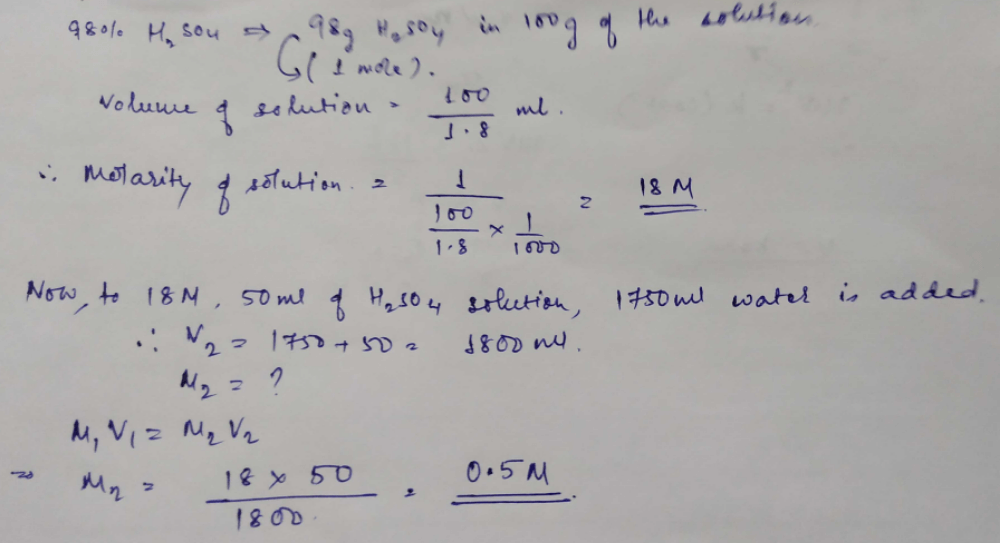 98% H₂SO₄ ⇒ 98g H₂SO₄ in 100g of the solution
(1 mole).
Volume of solution = 100/1.8 ml.
∴ Molarity of solution = 1/(100/1.8 × 1/1000) = 18 M
Now, to 18M, 50ml of H₂SO₄ solution, 1750ml water is added.
∴ V₂ = 1750 + 50 = 1800 ml.
M₂ = ?
M₁V₁ = M₂V₂
⇒ M₂ = 18 × 50/1800 = 0.5M.